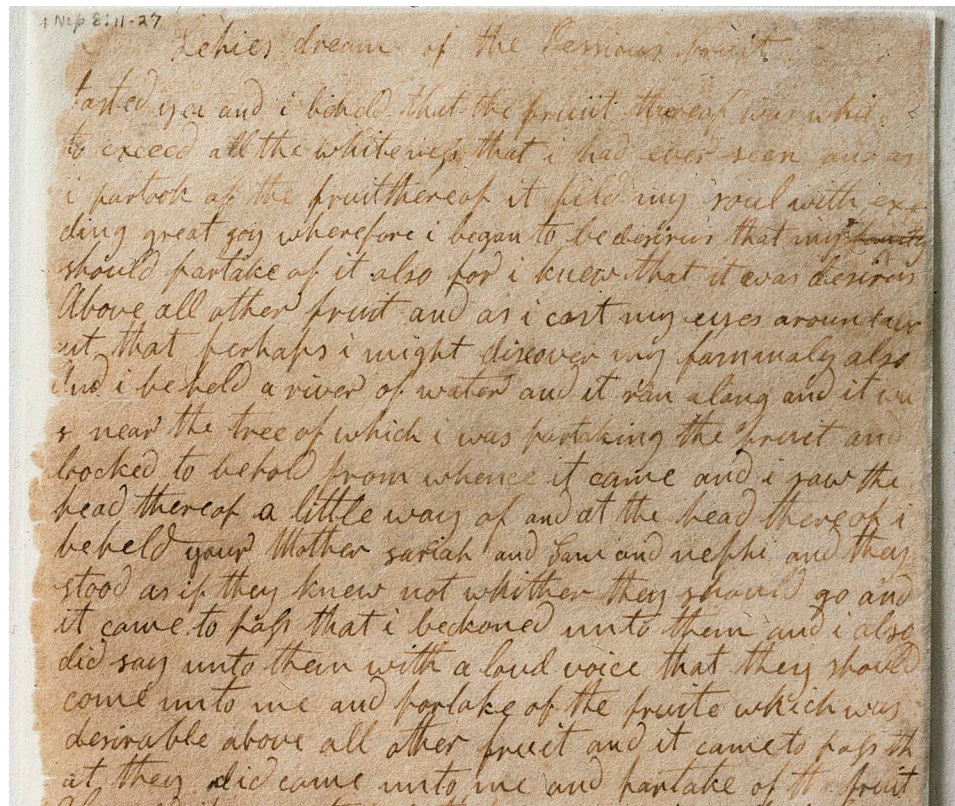 1 Nep 8:11-27
Lehies dream of the fruit
tasted yea and i behold that the fruit thereof was white
to exceed all the whiteness that i had ever seen and as
i partook of the fruit thereof it fild my soul with exe
ding great goy wherefore i began to be desirus that my
should partake of it also for i knew that it was desirus
Above all other fruit and as i cast my eyes around abo
ut that perhaps i might discover my fammaly also
And i beheld a river of water and it ran along and it wa
s near the tree of which i was partaking the fruit and
i loocked to behold from whence it came and i saw the
head thereof a little way of and at the head thereof i
beheld your Mother sariah and Sam and nephi and they
stood as if they knew not whither they should go and
it came to pass that i beckoned unto them and i also
did say unto them with a loud voice that they should
come unto me and partake of the fruite which was
desirable above all other fruit and it came to pass th
at they did come unto me and partake of the fruit